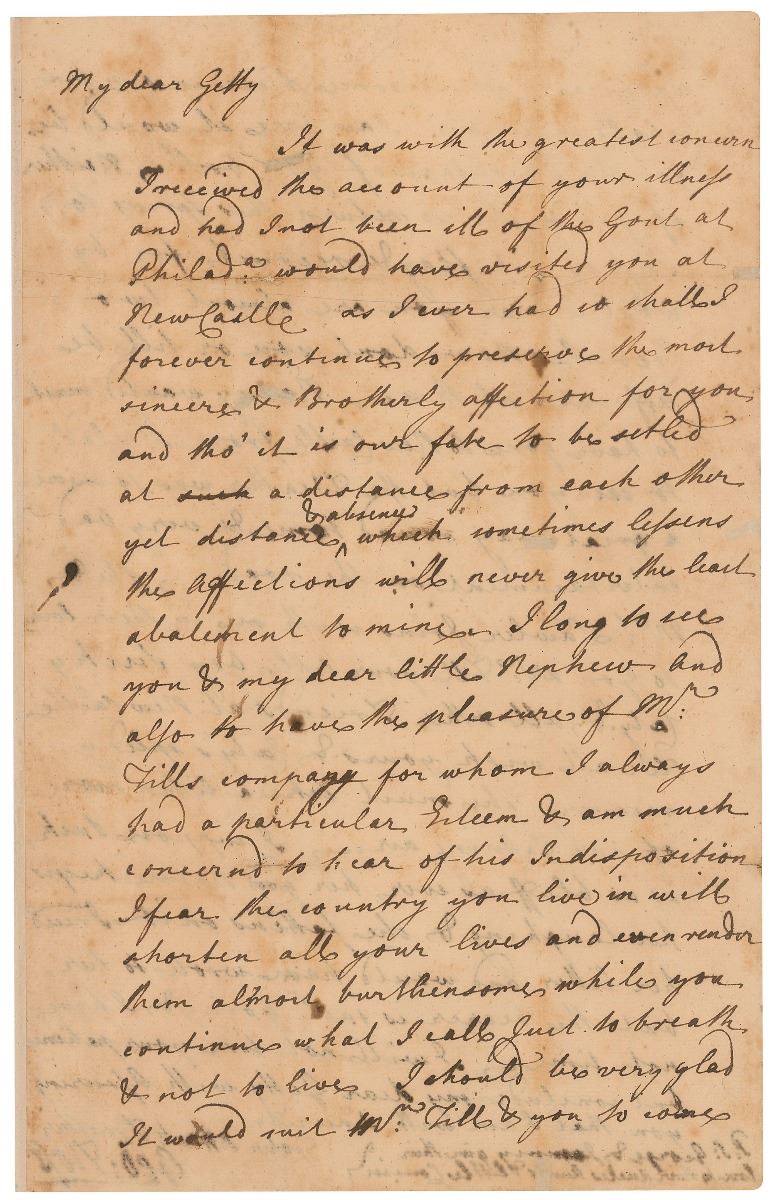 My dear Getty
It was with the greatest concern
I received the account of your illness
and had I not been ill of the Gout at
Philad.a would have visited you at
New Castle as I ever had so shall I
forever continue to preserve the most
sincere & Brotherly affection for you
and tho' it is our fate to be setled
at such a distance from each other
& absence
yet distance ^ which sometimes lessens
the Affections will never give the least
abatement to mine. I long to see
you & my dear little Nephew And
also to have the pleasure of Mr:
Tills company for whom I always
had a particular Esteem & am much
concernd to hear of his Indisposition
I fear the country you live in will
shorten all your lives and even render
them almost burthensome while you
continue what I call Just to breath
& not to live I should be very glad
It would suit Mr: Till & you to come